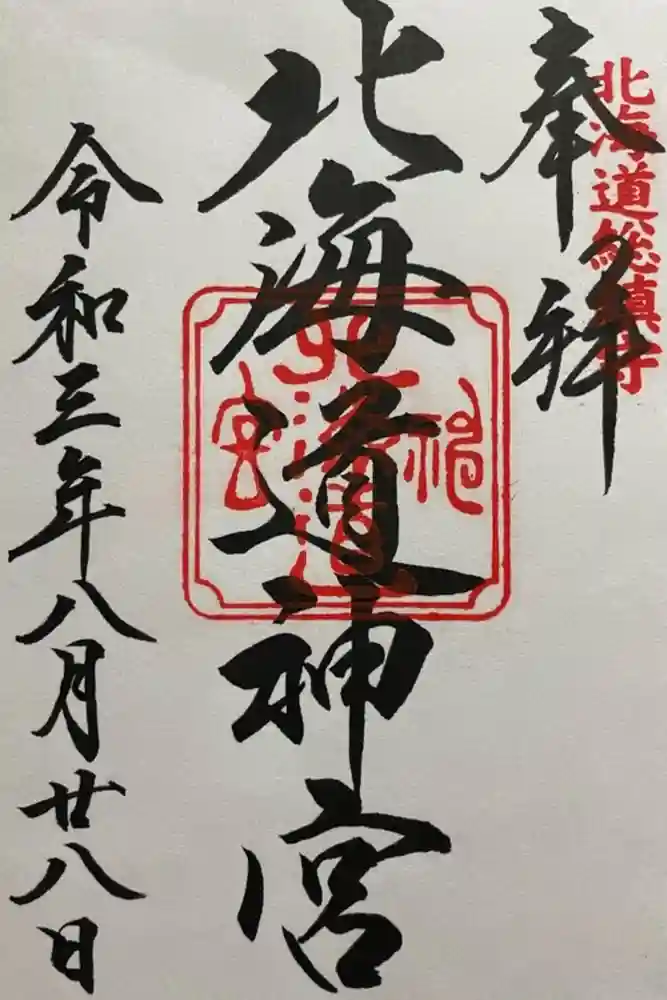 北海道総鎮守
奉拝
北海道神宮
北海道神宮
令和三年八月廿八日